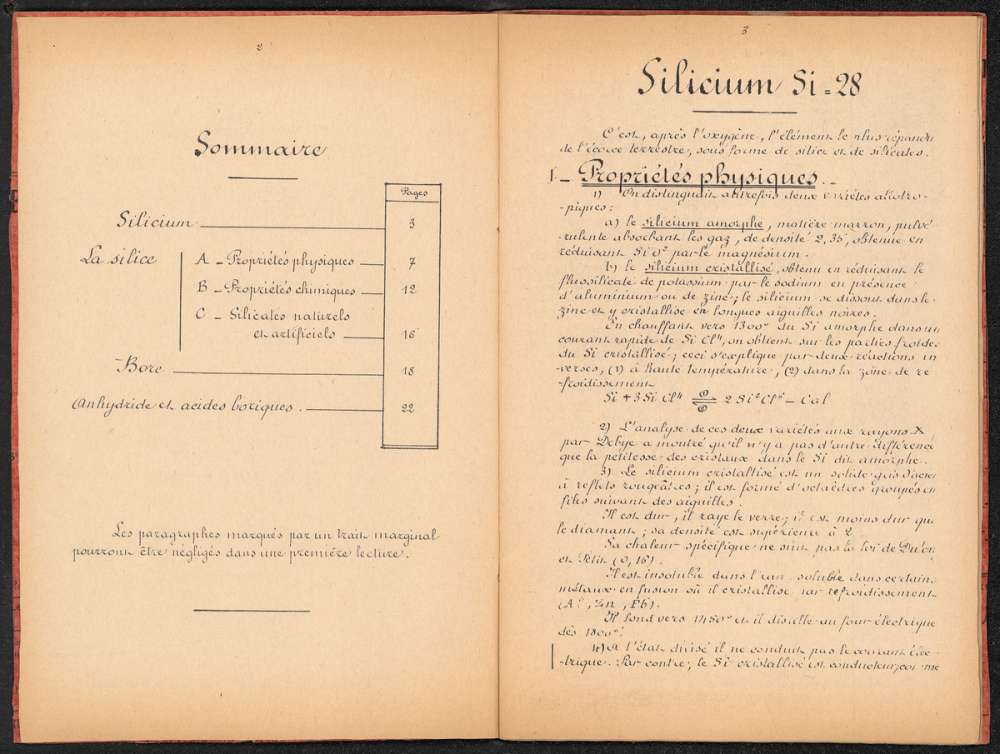 2
Sommaire
Pages
Silicium 3
La silice
A - Propriétés physiques 7
B - Propriétés chimiques 12
C - Silicates naturels
et artificiels 16
Bore 18
Anhydride et acides boriques. 22
Les paragraphes marqués par un trait marginal
pourront être négligés dans une première lecture.
3
Silicium Si = 28
C'est, après l'oxygène, l'élément le plus répandu
de l'écorce terrestre, sous forme de silice et de silicates.
I - Propriétés physiques. -
1) On distinguait autrefois deux variétés allotro-
-piques:
a) le silicium amorphe, matière marron, pulvé-
-rulente absorbant les gaz, de densité 2,35, obtenue en
réduisant SiO² par le magnésium.
b) le silicium cristallisé, obtenu en réduisant le
fluosilicate de potassium par le sodium en présence
d'aluminium ou de zinc; le silicium se dissout dans le
zinc et y cristallise en longues aiguilles noires.
En chauffant vers 1300° du Si amorphe dans un
courant rapide de Si Cl⁴, on obtient sur les parties froides
du Si cristallisé; ceci s'explique par deux réactions in-
-verses, (1) à haute température, (2) dans la zone de re-
-froidissement
Si + 3 Si Cl⁴ ⇌ 2 Si² Cl⁶ - Cal
2) L'analyse de ces deux variétés aux rayons X,
par Debye a montré qu'il n'y a pas d'autre différence
que la petitesse des cristaux dans le Si dit amorphe.
3) Le silicium cristallisé est un solide gris d'acier
à reflets rougeâtres; il est formé d'octaèdres groupés en
files suivant des aiguilles.
Il est dur, il raye le verre; il est moins dur que
le diamant; sa densité est supérieure à 2.
Sa chaleur spécifique ne suit pas la loi de Dulong
et Petit (0,16).
Il est insoluble dans l'eau, soluble dans certains
métaux en fusion où il cristallise par refroidissement
(Al, Zn, Pb).
Il fond vers 1450° et il distille au four électrique
dès 1800°.
4) A l'état divisé il ne conduit pas le courant élec-
-trique. Par contre, le Si cristallisé est conducteur, comme